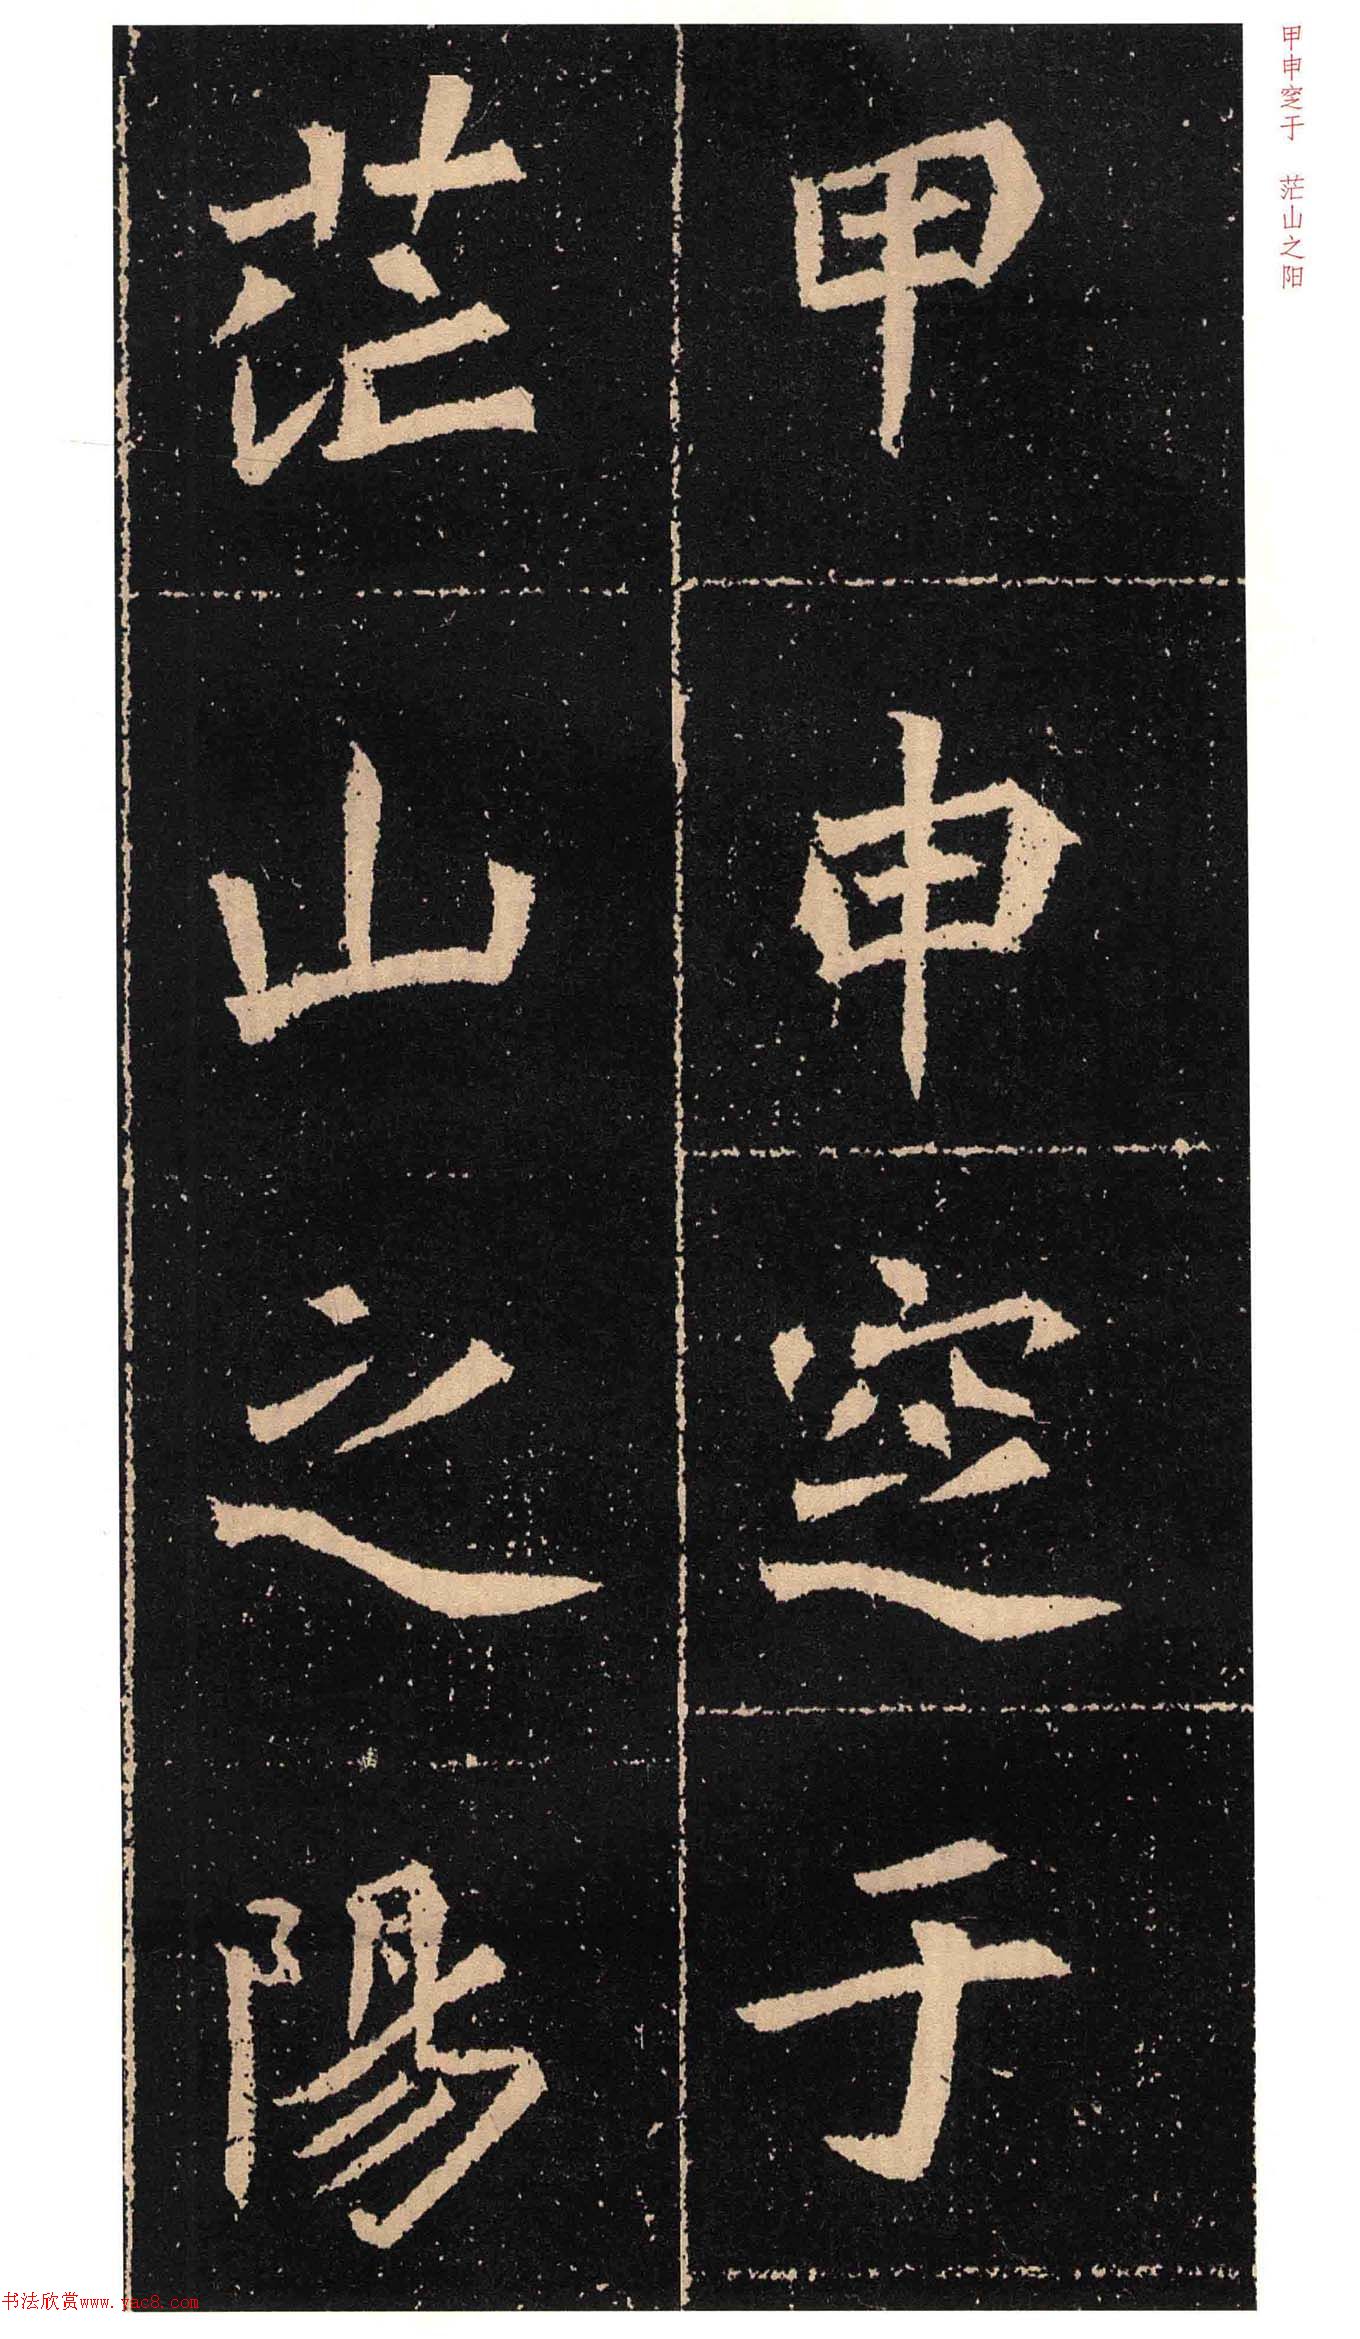 甲申窆于
茫山之陽
甲申窆于 茫山之阳
书法欣赏www.yac8.com